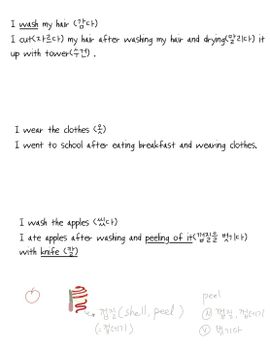 I wash my hair (감다)
I cut(자르다) my hair after washing my hair and drying(말리다) it
up with tower(수건) .
I wear the clothes (옷)
I went to school after eating breakfast and wearing clothes.
I wash the apples (씻다)
I ate apples after washing and peeling of it(껍질을 벗기다)
with knife (칼)
peel
껍질(shell, peel)
(=껍데기)
Ⓝ 껍질, 껍데기
Ⓥ 벗기다